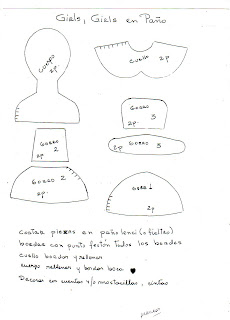 Giels, Giels en Paño
cuerpo 2p.
cuello 2p
gorro 2p
gorro 3
2p gorro 3
gorro 2
2p.
gorro 1
2p
cortar piezas en paño lenci (o fieltro)
bordear con punto festón todos los bordes
cuello bordar y rellenar
cuerpo rellenar y bordar boca
Decorar con cuentas y/o mostacillas, cintas